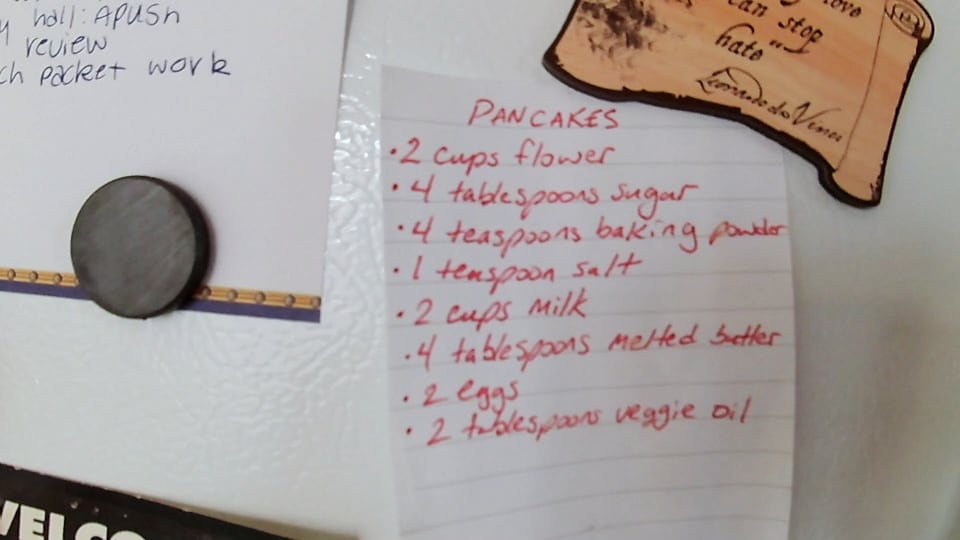 hall: APUSH
review
packet work
love
can stop
hate"
Leonardo da Vinci
PANCAKES
• 2 cups flower
• 4 tablespoons sugar
• 4 teaspoons baking powder
• 1 teaspoon salt
• 2 cups milk
• 4 tablespoons melted butter
• 2 eggs
• 2 tablespoons veggie oil